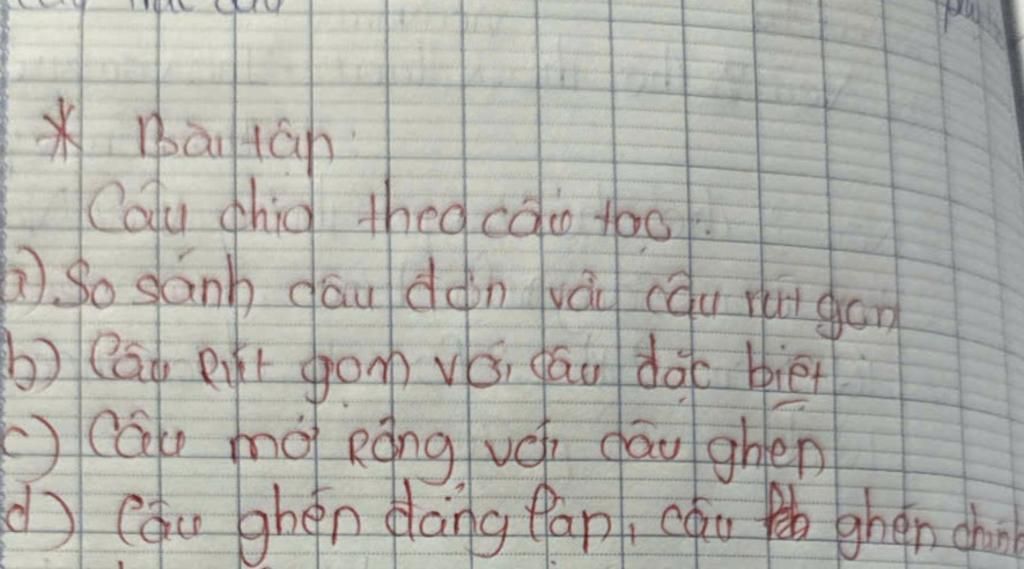 * Bài tập
Câu chia theo cấu tạo.
a) So sánh câu đơn với câu rút gọn
b) Câu rút gọn với câu đặc biệt
c) Câu mở rộng với câu ghép
d) Câu ghép đẳng lập, câu ghép chính